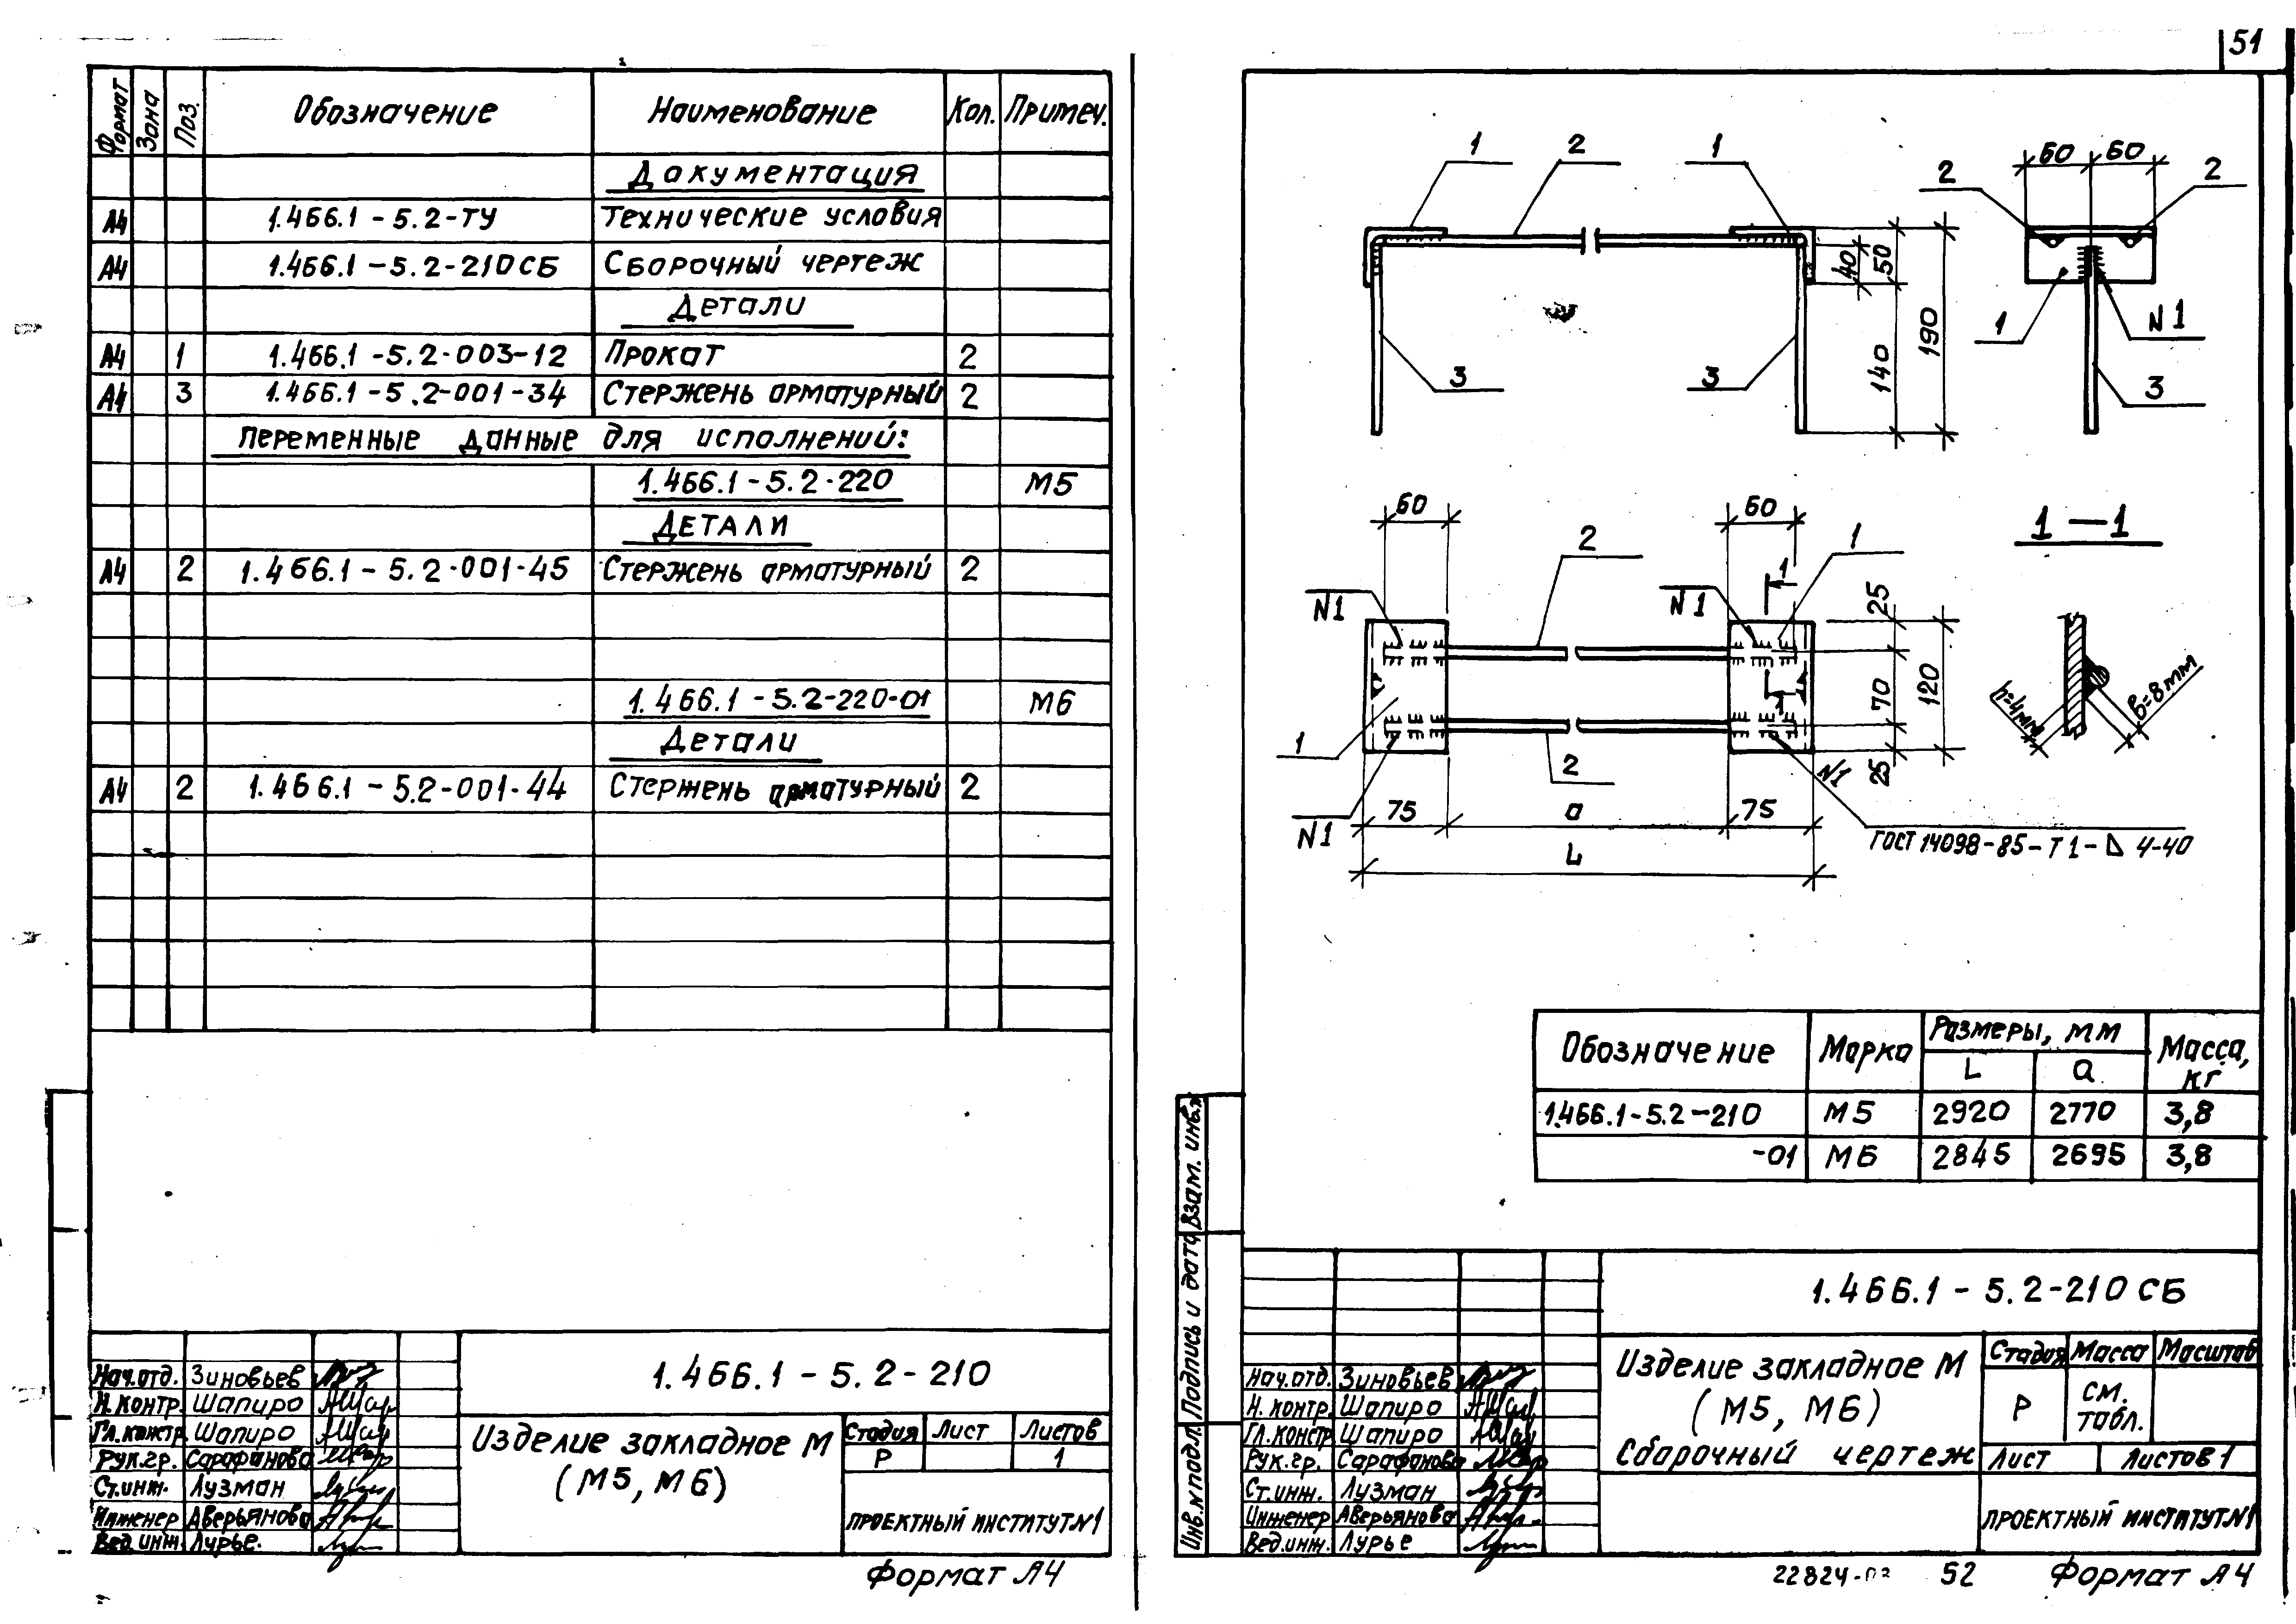 51
Формат Зона Поз. Обозначение Наименование Кол. Примеч.
Документация
А4 1.466.1-5.2-ТУ Технические условия
А4 1.466.1-5.2-210СБ Сборочный чертеж
Детали
А4 1 1.466.1-5.2-003-12 Прокат 2
А4 3 1.466.1-5.2-001-34 Стержень арматурный 2
Переменные данные для исполнений:
1.466.1-5.2-220 М5
Детали
А4 2 1.466.1-5.2-001-45 Стержень арматурный 2
1.466.1-5.2-220-01 М6
Детали
А4 2 1.466.1-5.2-001-44 Стержень арматурный 2
1.466.1-5.2-210
Нач.отд. Зиновьев
Н.контр. Шапиро
Гл.констр. Шапиро
Рук.гр. Сарафанова
Ст.инж. Лузман
Инженер Аверьянова
Вед.инж. Лурье.
Изделие закладное М
(М5, М6)
Стадия Лист Листов
Р 1
ПРОЕКТНЫЙ ИНСТИТУТ №1
Формат А4
1 2 1
60 60
2 2
40 50
190
140
3 3
1 N1
3
60 60
2 1
1-1
N1 N1 1
25
70 120
25
1
1 2
N1
N1
75 a 75
L
ГОСТ 14098-85-Т1-▷ 4-40
h=4мм
в=8мм
Обозначение Марка Размеры, мм Масса, кг
L a
1.466.1-5.2-210 М5 2920 2770 3,8
-01 М6 2845 2695 3,8
Взам. инв.№
Подпись и дата
Инв.№ подл.
1.466.1-5.2-210 СБ
Нач.отд. Зиновьев
Н.контр. Шапиро
Гл.констр Шапиро
Рук.гр. Сарафанова
Ст.инж. Лузман
Инженер Аверьянова
Вед.инж. Лурье
Изделие закладное М
(М5, М6)
Сборочный чертеж
Стадия Масса Масштаб
Р см. табл.
Лист Листов 1
ПРОЕКТНЫЙ ИНСТИТУТ №1
22824- 52 Формат А4